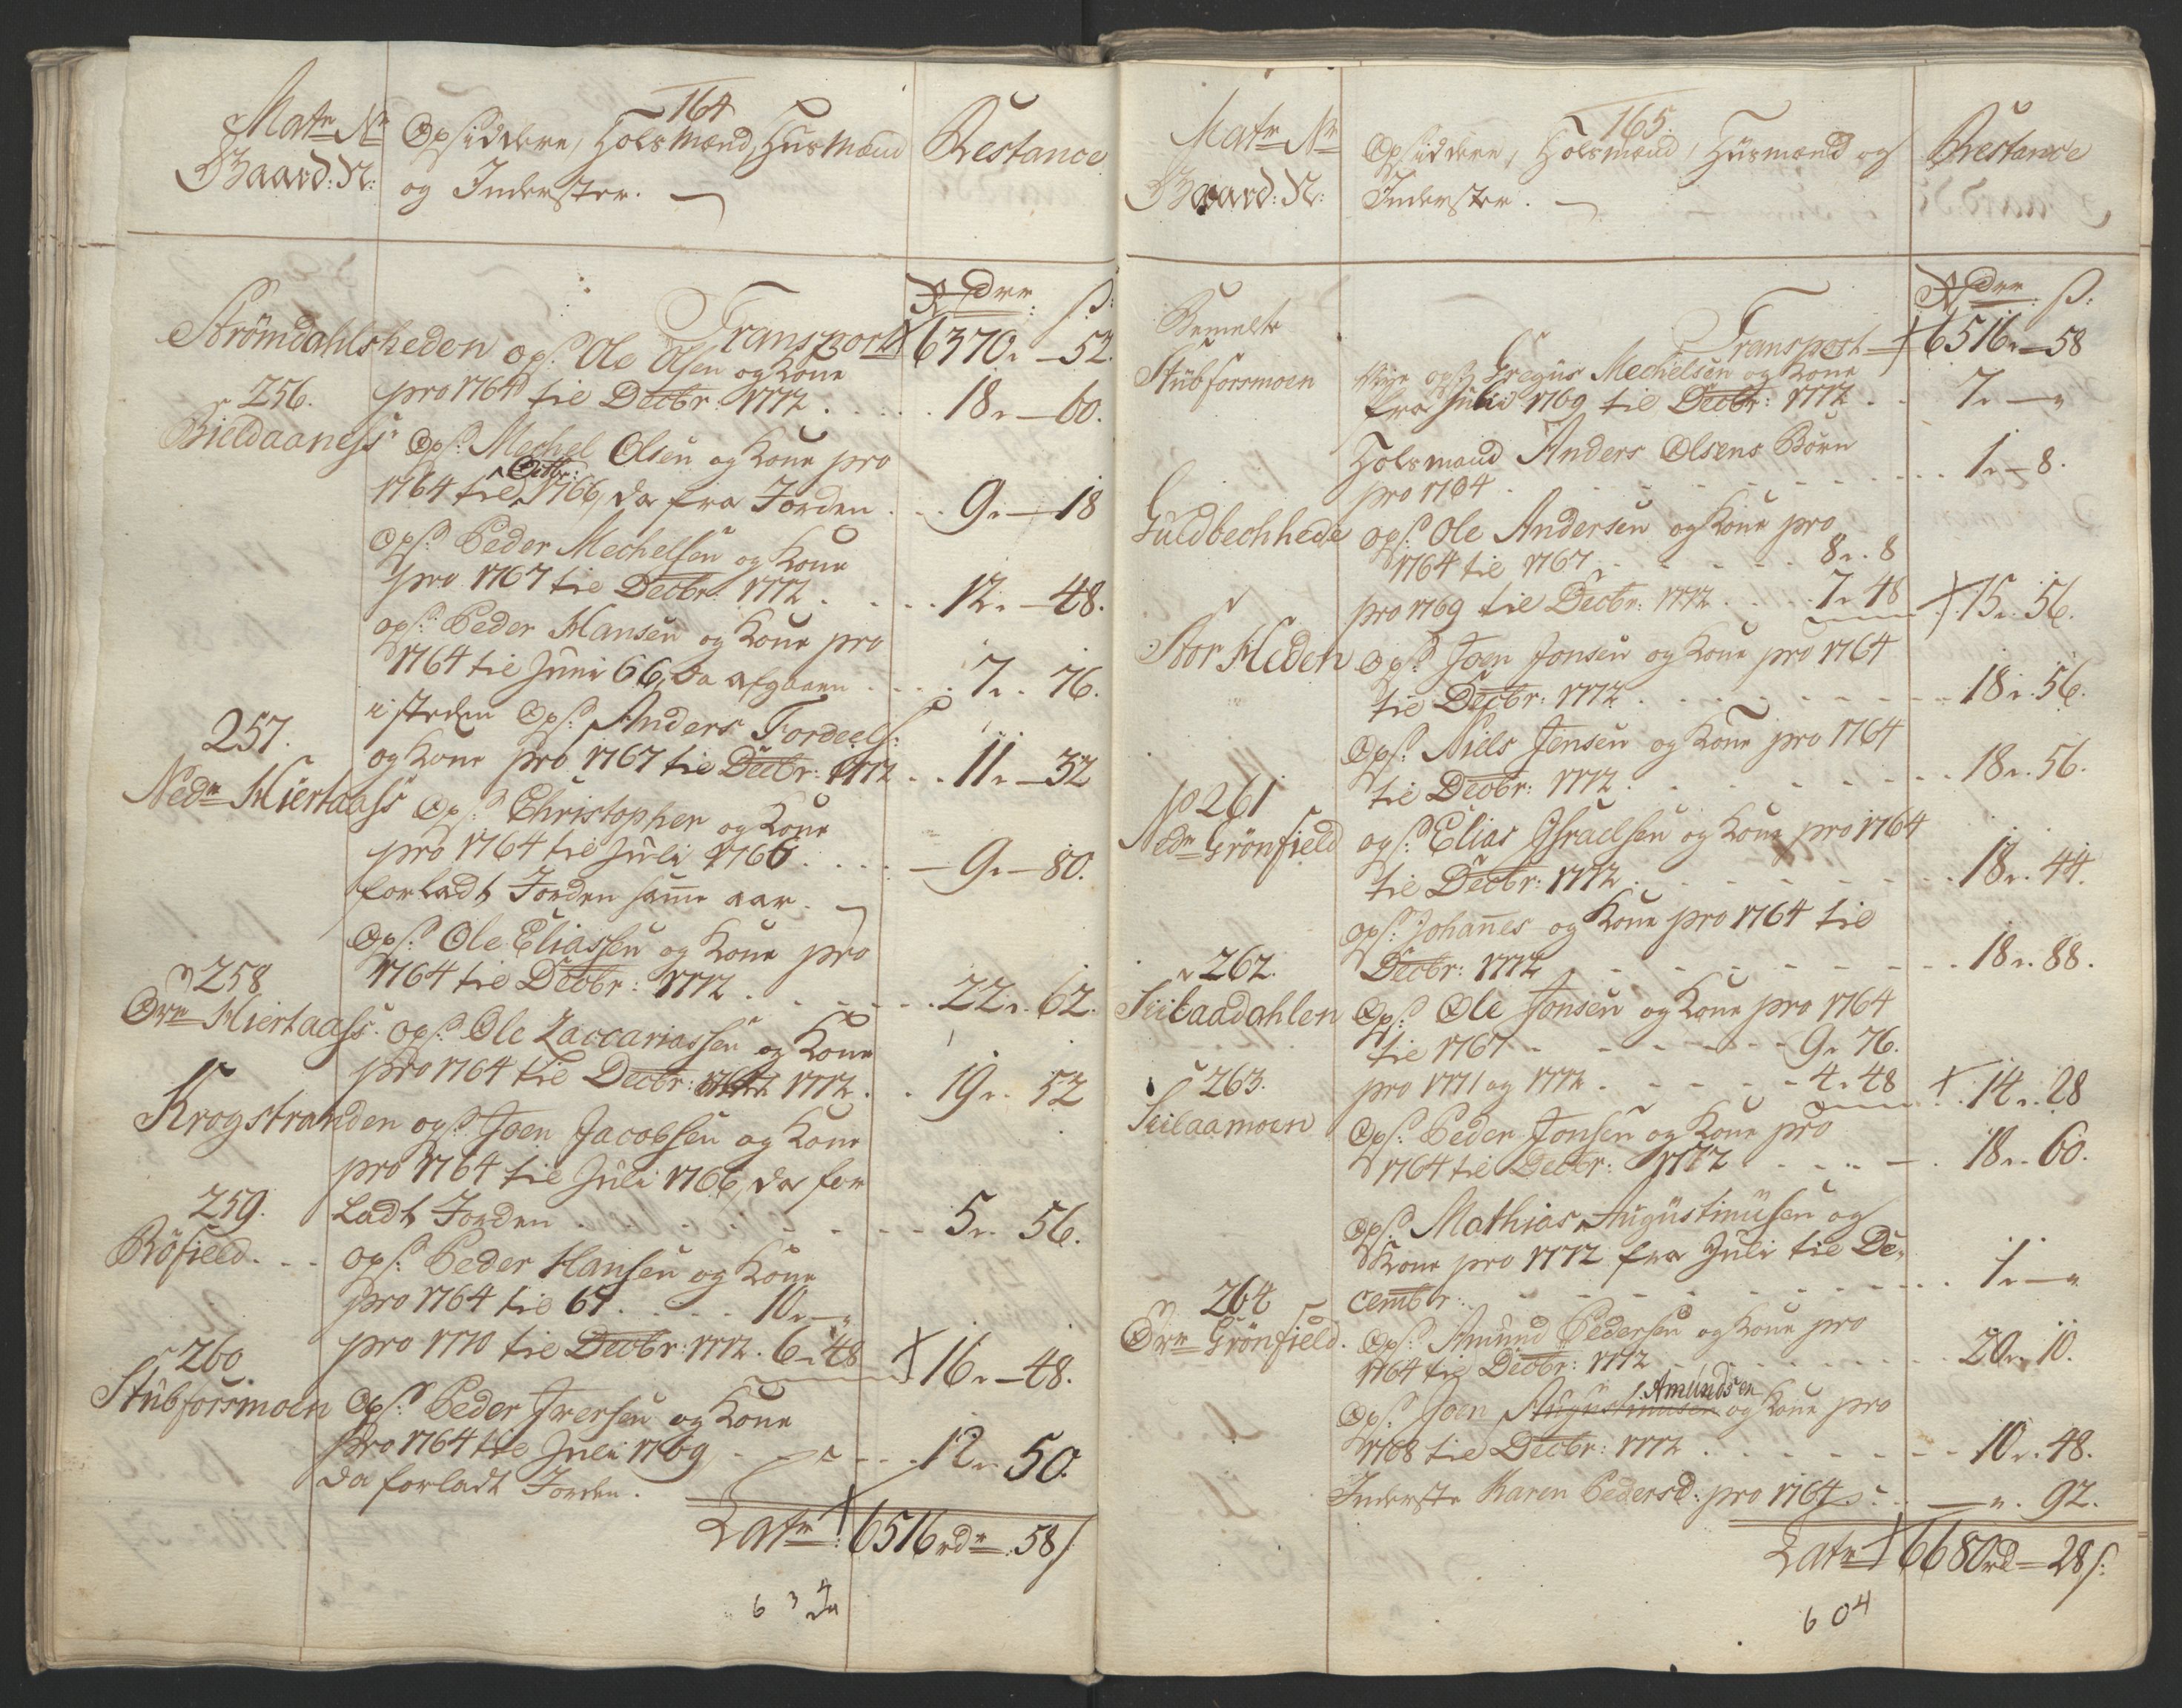 164
Matr Nr Opsiddere, Holsmænd, Husmænd Restance
Gaard: N: og Inderster.
Rdr ß:
Transport 6370 - 52.
Strömdahlsheden Ops: Ole Olsen og Kone
256. pro 1764 til Decbr: 1772 18 - 60.
Bieldaaness Ops: Mechel Olsen og Kone pro
1764 til Decbr: 1766, da fra Jorden 9 - 18
Ops: Peder Mechelsen og Kone
pro 1767 til Decbr: 1772 12 - 48.
Ops: Peder Hansen og Kone pro
1764 til Juni 66, da afgaaen 7 - 76.
257. i steden Ops: Anders Fordeels:
og Kone pro 1767 til Decbr: 1772 11 - 32
Nedr Hiertaass Ops: Christopher og Kone
pro 1764 til Juli 1766 9 - 80.
forladt Jorden samme aar.
Ops: Ole Eliassen og Kone pro
258 1764 til Decbr: 1772 22 - 62.
Övr Hiertaass. Ops: Ole Zaccariassen og Kone
pro 1764 til Decbr: 1772 19 - 52
Krogstranden ops: Joen Jacobsen og Kone
pro 1764 til Juli 1766, da for
259. ladt Jorden 5 - 56.
Röfield. Ops: Peder Hansen og Kone
pro 1764 til 67 10 - "
260 pro 1770 til Decbr: 1772. 6 - 48 16 - 48.
Stubforsmoen Ops: Peder Iversen og Kone
pro 1764 til Juli 1769 12 - 50.
da forladt Jorden.
Latr: 6516 rdr 58 ß
6 3 4
165.
Matr Nr Opsiddere, Holsmænd, Husmænd og Restance
Gaard: N: Inderster.
Rdr ß:
Transport 6516 - 58
Bemelte
Stubforsmoen Nye ops: Gregus Mechelsen og Kone
fra Juli 1769 til Decbr: 1772 7 - "
Holsmand Anders Olsens Börn
pro 1764 1 - 8.
Guldbechhede Ops: Ole Andersen og Kone pro
1764 til 1767 8 - 8
pro 1769 til Decbr: 1772 7 - 48 15 - 56.
Stor Heden Ops: Joen Jonsen og Kone pro 1764
til Decbr: 1772 18 - 56.
Ops: Niels Jensen og Kone pro 1764
til Decbr: 1772 18 - 56.
261
Nedr Grönfield Ops: Elias Israelsen og Kone pro 1764
til Decbr: 1772 18 - 44.
Ops: Johannes og Kone pro 1764 til
262. Decbr: 1772 18 - 88.
Ops: Ole Jonsen og Kone pro 1764
til 1767 9 - 76.
263. pro 1771 og 1772 4 - 48 14 - 28
Ops: Peder Jonsen og Kone pro
1764 til Decbr: 1772 18 - 60.
Ops: Mathias Augustinusen og
Kone pro 1772 fra Juli til De-
cembr: 1 - "
264
Övr Grönfield. Ops: Amund Pedersen og Kone pro
1764 til Decbr: 1772 20 - 10.
Amundsen
Ops: Joen Augustinusen og Kone pro
1768 til Decbr: 1772 10 - 48.
Inderste Karen Pedersd: pro 1764 " - 92.
Latr 6680 rd 28 ß:
6 0 4